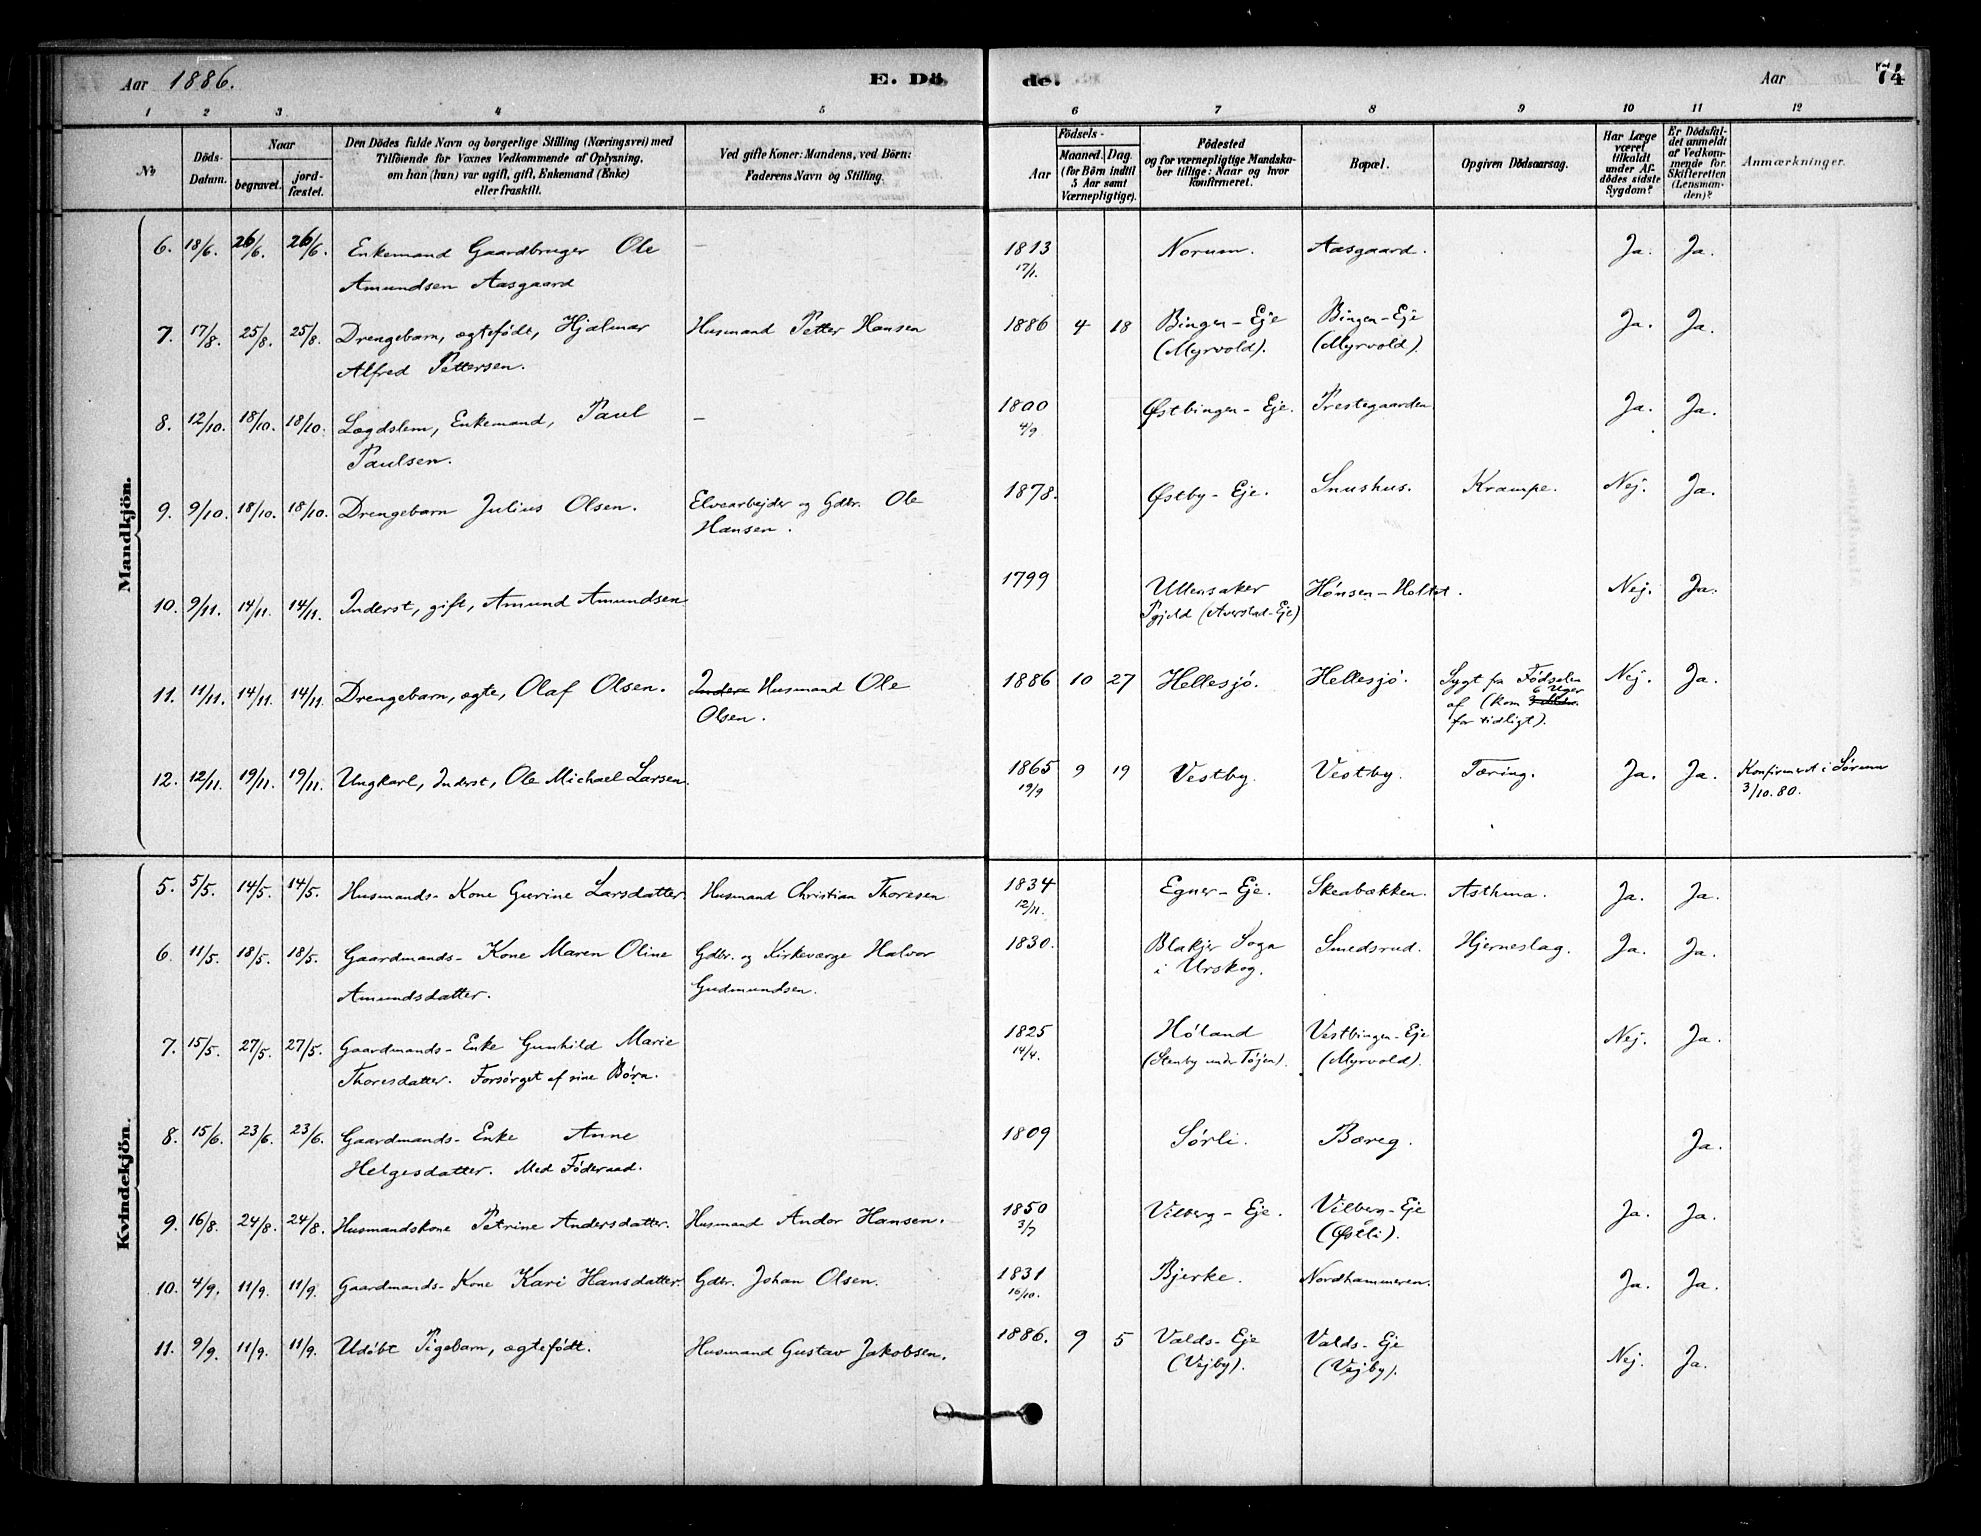 Aar 1886. E. Dö de. Aar 74
1 2 3 4 5 6 7 8 9 10 11 12
No
Döds-Datum.
Naar
begravet. jord-fæstet.
Den Dödes fulde Navn og borgerlige Stilling (Næringsvei) med
Tilföiende for Voxnes Vedkommende af Oplysning,
om han (hun) var ugift, gift, Enkemand (Enke)
eller fraskilt.
Ved gifte Koner: Mandens, ved Börn:
Faderens Navn og Stilling.
Födsels-
Aar Maaned. Dag.
(for Börn indtil
5 Aar samt
Værnepligtige).
Födested
og for værnepligtige Mandska-
ber tillige: Naar og hvor
konfirmeret.
Bopæl.
Opgiven Dödsaarsag.
Har Læge
været
tilkaldt
under Af-
dödes sidste
Sygdom?
Er Dödsfal-
det anmeldt
af Vedkom-
mende for
Skifteretten
(Lensman-
den)?
Anmærkninger.
Mandkjön.
6. 18/6. 26/6. 26/6. Enkemand Gaardbruger Ole — 1813 Norum. Aasgaard. Ja. Ja.
Amundsen Aasgaard 17/1.
7. 17/8. 25/8. 25/8. Drengebarn, ægtefödt, Hjalmar Husmand Petter Hansen 1886 4 18 Bingen-Eje Bingen-Eje Ja. Ja.
Alfred Pettersen. (Myrvold). (Myrvold).
8. 12/10. 18/10. 18/10. Lægdslem, Enkemand, Paul — 1800 Østbingen-Eje. Prestegaarden. Ja. Ja.
Paulsen. 4/9
9. 9/10. 18/10. 18/10. Drengebarn Julius Olsen. Elvearbejder og Gdbr. Ole 1878. Østby-Eje. Snushus. Krampe. Nej. Ja.
Hansen.
10. 9/11. 14/11. 14/11. Inderst, gift, Amund Amundsen 1799 Ullensaker Hónsen-Holtet. Nej. Ja.
Pgjeld (Averstad-Eje)
11. 11/11. 14/11. 14/11. Drengebarn, ægte, Olaf Olsen. Inders Husmand Ole 1886 10 27 Hellesjó. Hellesjó. Sygt fra Fódselen Nej. Ja.
Olsen. af (kom 6 Uger
for tidligt).
12. 12/11. 19/11. 19/11. Ungkarl, Inderst, Ole Michael Larsen. 1865 9 19 Vestby. Vestby. Tæring. Ja. Ja. Konfirmeret i Sórum
19/9 3/10.80.
Kvindekjön.
5. 5/5. 14/5. 14/5. Husmands-Kone Gurine Larsdatter. Husmand Christian Thoresen 1834 Egner-Eje. Skeabækken. Asthma. Ja. Ja.
12/11.
6. 11/5. 18/5. 18/5. Gaardmands-Kone Maren Oline Gdbr. og Kirkeværge Halvor 1830. Blakjer Sogn Smedsrud. Hjerneslag. Ja. Ja.
Amundsdatter. Gudmundsen. i Urskog.
7. 15/5. 27/5. 27/5. Gaardmands-Enke Gunhild Marie 1825 Hóland Vestbingen-Eje Nej. Ja.
Thoresdatter. Forsórget af sine Bórn. 14/4. (Stenby under Tójen). (Myrvold).
8. 15/6. 23/6. 23/6. Gaardmands-Enke Anne 1809 Sórli. Bæreg. Ja.
Helgesdatter. Med Fóderaad.
9. 16/8. 24/8. 24/8. Husmandskone Petrine Andersdatter. Husmand Andor Hansen. 1850 Vilberg-Eje. Vilberg-Eje Ja. Ja.
3/7 (Østli).
10. 4/9. 11/9. 11/9. Gaardmands-Kone Kari Hansdatter. Gdbr. Johan Olsen. 1831 Bjerke. Nordhammeren. Ja. Ja.
16/10.
11. 9/9. 11/9. 11/9. Udóbt Pigebarn, ægtefódt. Husmand Gustav Jakobsen. 1886. 9 5 Valds-Eje Valds-Eje Nej. Ja.
(Vejby). (Vejby).